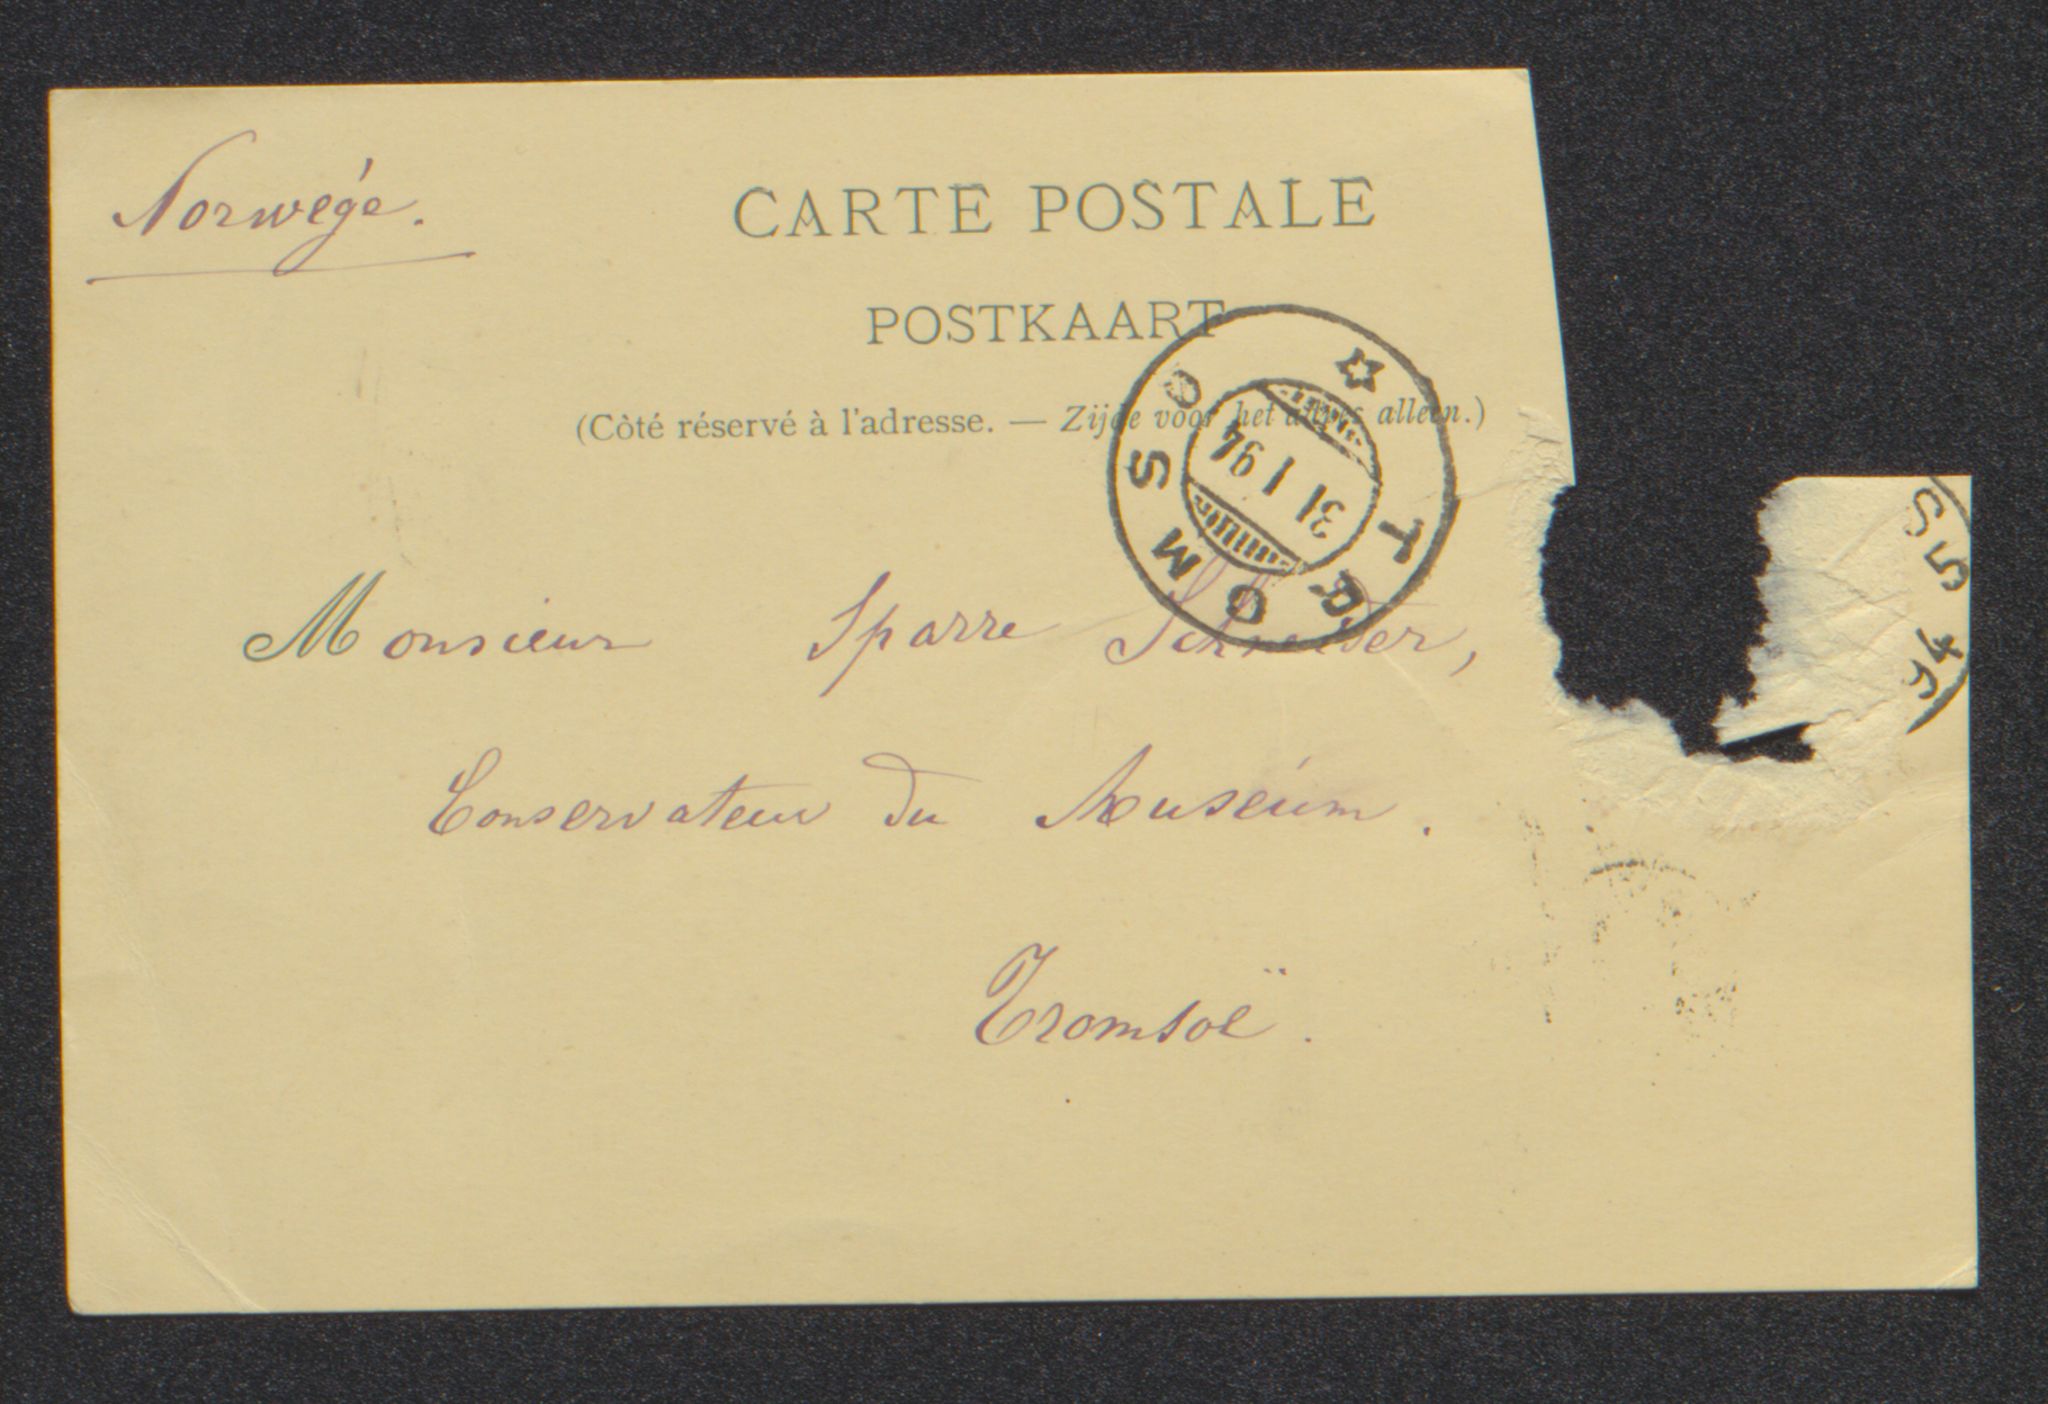 Norwége.
CARTE POSTALE
POSTKAART
(Côté réservé à l'adresse. — Zijde voor het adres alleen.)
TROMSO
31 1 94
Monsieur Sparre Schneider,
Conservateur du Muséum.
Tromsoë.